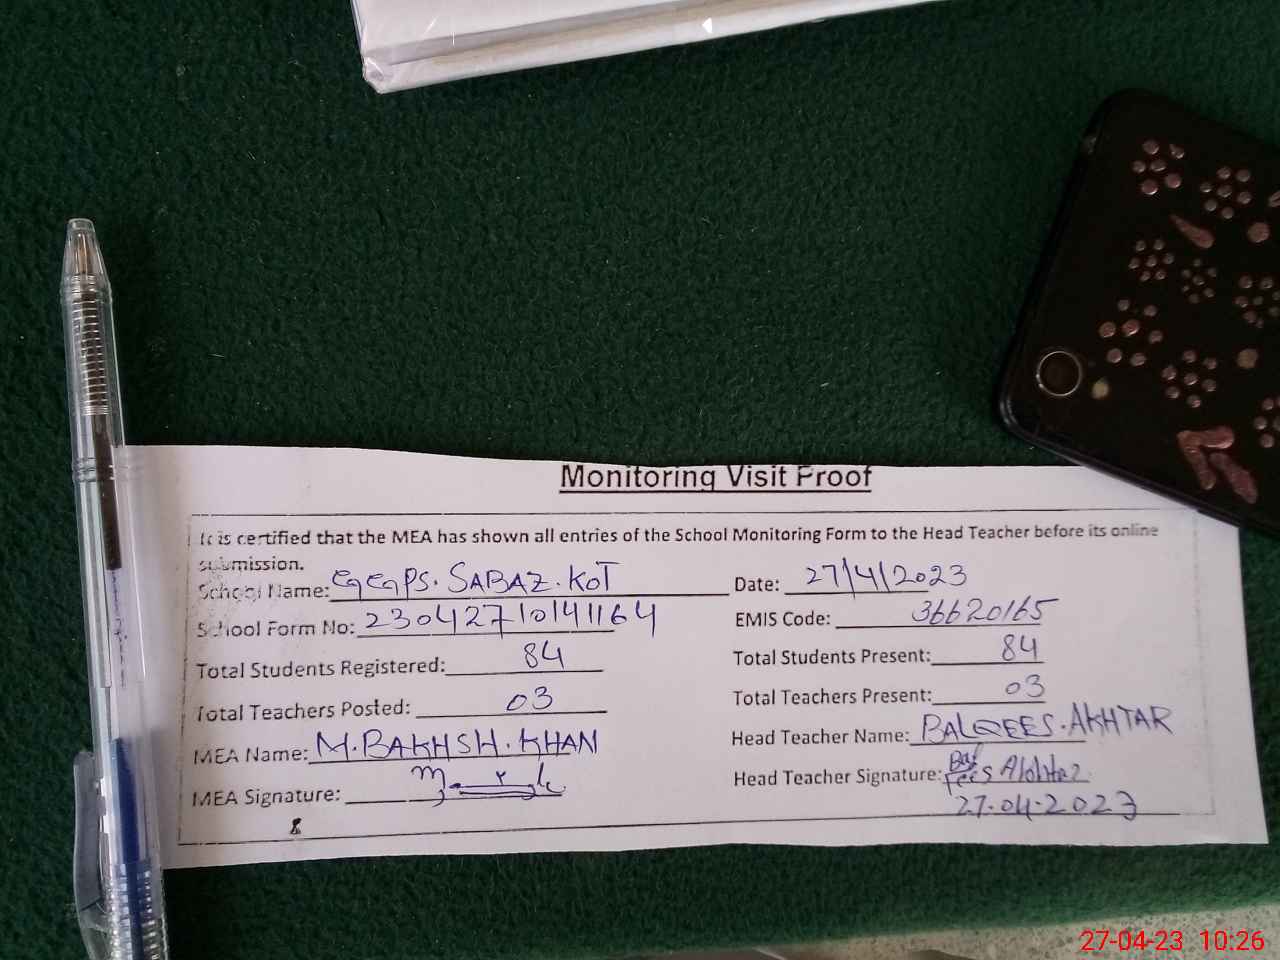 Monitoring Visit Proof
It is certified that the MEA has shown all entries of the School Monitoring Form to the Head Teacher before its online
submission.
School Name: GGPS. SABAZ. KOT Date: 27/4/2023
School Form No: 23042710141164 EMIS Code: 36620165
Total Students Registered: 84 Total Students Present: 84
Total Teachers Posted: 03 Total Teachers Present: 03
MEA Name: M. BAKHSH. KHAN Head Teacher Name: BALQEES. AKHTAR
MEA Signature: Head Teacher Signature:
27-04-2023
27-04-23 10:26